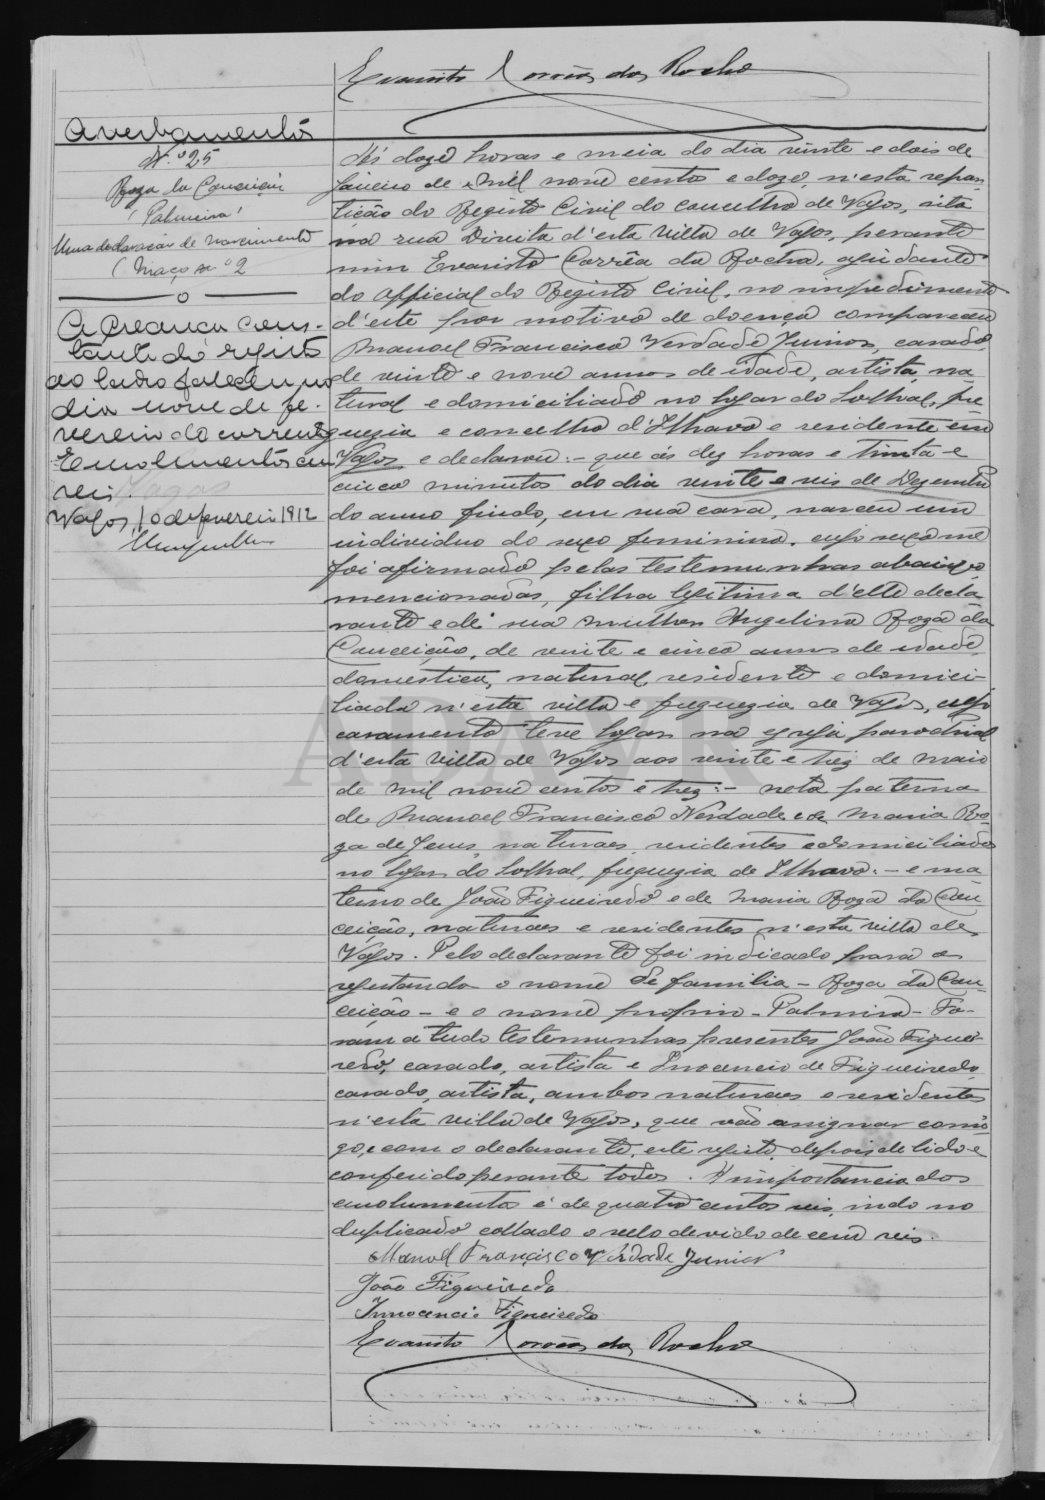 Evaristo Corrêa da Rocha
Averbamento
N.º 25
Roza da Conceição
(Palmira)
Uma declaração de nascimento
(Maço n.º 2
A creança cons-
tante do registo
ao lado falleceu no
dia nove de fe-
vereiro do corrente
Emolumentos cem
reis. Pagos
Vagos, 10 de fevereiro 1912
Ás doze horas e meia do dia vinte e dois de
Janeiro de mil nove centos e doze, n'esta repar-
tição do Registo Civil do concelho de Vagos, sita
na rua Direita d'esta Villa de Vagos, perante
mim Evaristo Corrêa da Rocha, ajudante
do official do Registo Civil, no impedimento
d'este por motivo de doença compareceu
Manoel Francisco Verdade Junior, casado,
de vinte e nove annos de idade, artista, na-
tural e domiciliado no logar do Solhal, fre
guezia e concelho d'Ilhavo e residente em
Vagos e declarou:- que ás dez horas e trinta e
cinco minutos do dia vinte e seis de Dezembro
do anno findo, em sua casa, nasceu um
individuo do sexo feminino, cujo sexo me
foi afirmado pelas testemunhas abaixo
mencionadas, filha legitima d'elle decla
rante e de sua mulher Angelina Roza da
Conceição, de vinte e cinco annos de idade,
domestica, natural, residente e domici-
liada n'esta villa e freguezia de Vagos, cujo
casamento teve logar na egreja parochial
d'esta Villa de Vagos aos vinte e trez de maio
de mil nove centos e trez:- neta paterna
de Manoel Francisco Verdade e de Maria Ro-
za de Jesus, naturaes, residentes e domiciliados
no logar do Solhal, freguezia de Ilhavo:- e ma
terna de João Figueiredo e de Maria Roza da Con-
ceição, naturaes e residentes n'esta villa de
Vagos. Pelo declarante foi indicado para a
registanda o nome de familia - Roza da Con-
ceição - e o nome proprio - Palmira - Fo-
ram a tudo testemunhas presentes João Figuei-
redo, casado, artista e Innocencio de Figueiredo,
casado, artista, ambos naturaes e residentes
n'esta villa de Vagos, que vão assignar comi-
go, e com o declarante, este registo, depois de lido e
conferido perante todos. A importancia dos
emolumentos é de quatro centos reis, indo no
duplicado collado o sello devido de cem reis.
Manoel Francisco Verdade Junior
João Figueiredo
Innocencio Figueiredo
Evaristo Corrêa da Rocha
ADAVR